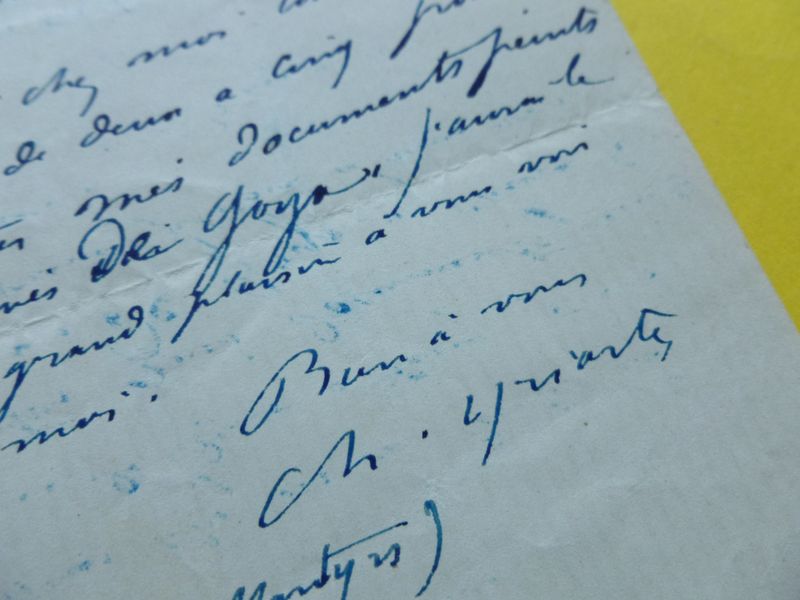 chez moi
de deux a cinq
mes documents peints
Goya, j'aurai le
grand plaisir à vous voir
moi. Bien à vous
Ch. Yriarte
Martyrs)